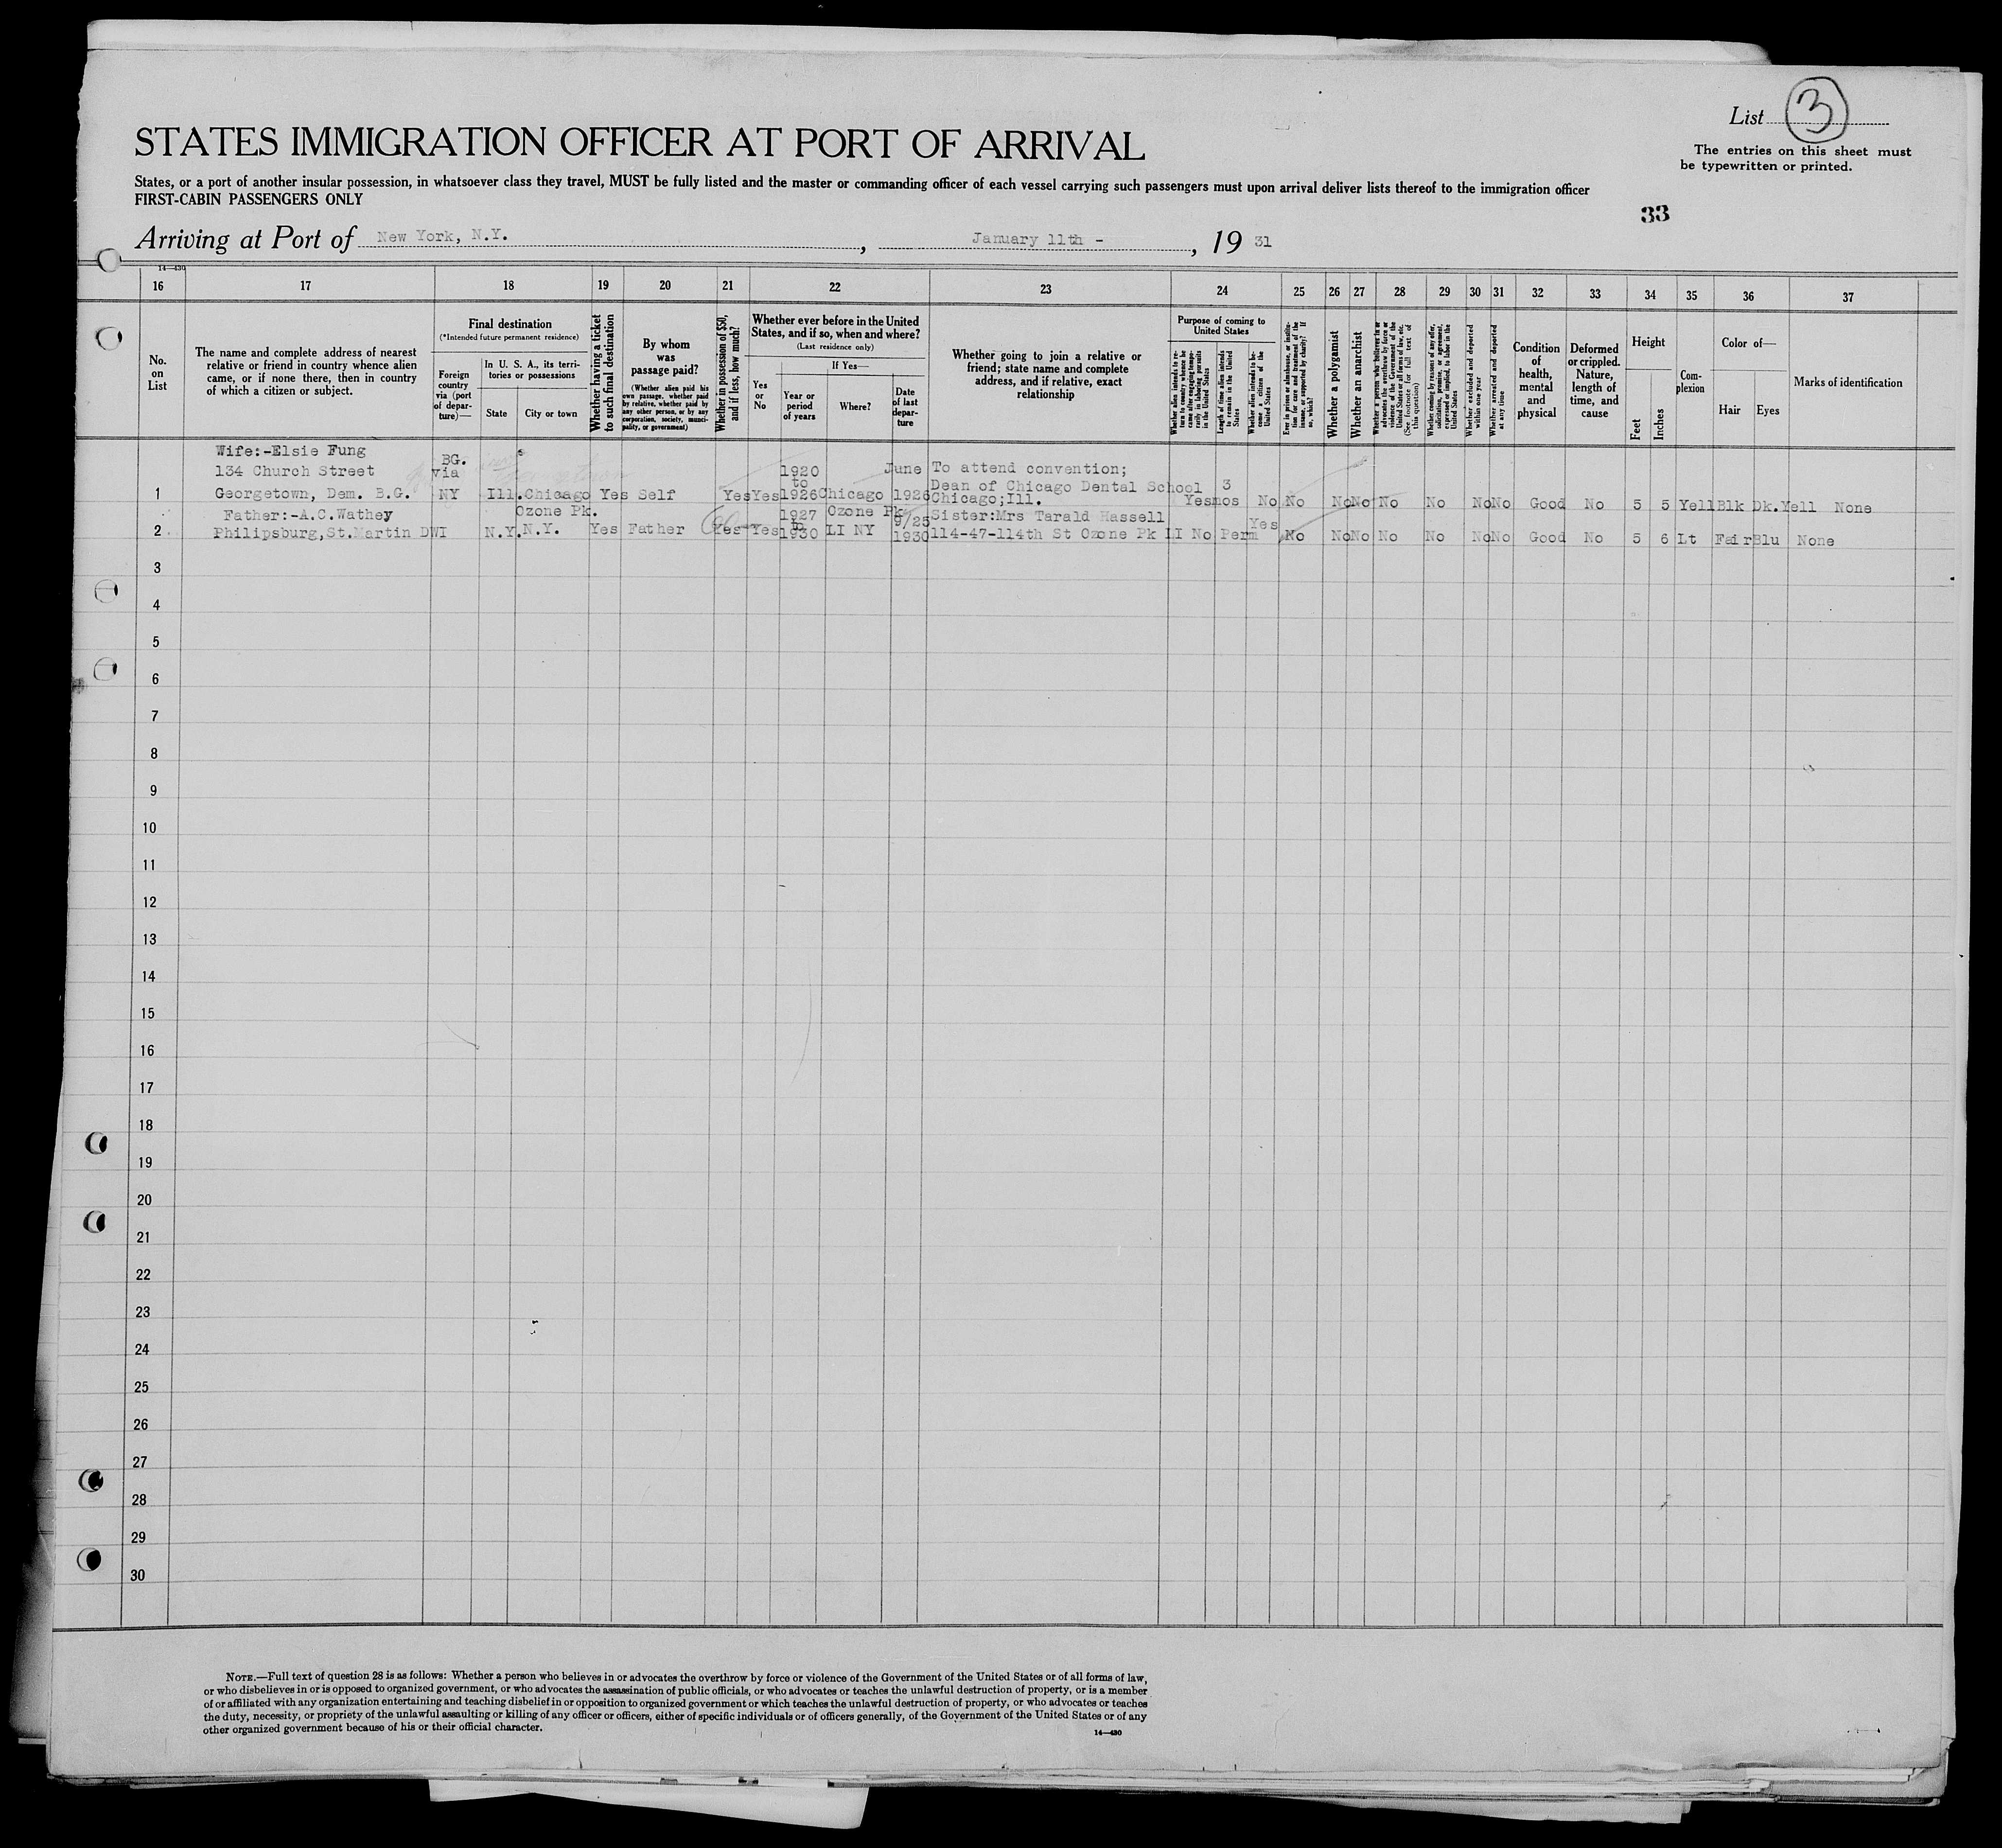 List 3
The entries on this sheet must
be typewritten or printed.
STATES IMMIGRATION OFFICER AT PORT OF ARRIVAL
States, or a port of another insular possession, in whatsoever class they travel, MUST be fully listed and the master or commanding officer of each vessel carrying such passengers must upon arrival deliver lists thereof to the immigration officer
FIRST-CABIN PASSENGERS ONLY
33
Arriving at Port of New York, N.Y. , January 11th - , 19 31
14—430
16 17 18 19 20 21 22 23 24 25 26 27 28 29 30 31 32 33 34 35 36 37
No.
on
List
The name and complete address of nearest
relative or friend in country whence alien
came, or if none there, then in country
of which a citizen or subject.
Final destination
(*Intended future permanent residence)
Foreign
country
via (port
of depar-
ture)—
In U. S. A., its terri-
tories or possessions
State City or town
Whether having a ticket
to such final destination
By whom
was
passage paid?
(Whether alien paid his
own passage, whether paid
by relative, whether paid by
any other person, or by any
corporation, society, munici-
pality, or government)
Whether in possession of $50,
and if less, how much?
Whether ever before in the United
States, and if so, when and where?
(Last residence only)
Yes
or
No
If Yes—
Year or
period
of years
Where?
Date
of last
depar-
ture
Whether going to join a relative or
friend; state name and complete
address, and if relative, exact
relationship
Purpose of coming to
United States
Whether alien intends to re-
turn to country whence he
came after engaging tempo-
rarily in laboring pursuits
in the United States
Length of time alien intends
to remain in the United
States
Whether alien intends to be-
come a citizen of the
United States
Ever in prison or almshouse, or institu-
tion for care and treatment of the
insane, or supported by charity? If
so, which?
Whether a polygamist
Whether an anarchist
Whether a person who believes in or
advocates the overthrow by force or
violence of the Government of the
United States or all forms of law, etc.
(See footnote for full text of
this question)
Whether coming by reason of any offer,
solicitation, promise, or agreement,
expressed or implied, to labor in the
United States
Whether excluded and deported
within one year
Whether arrested and deported
at any time
Condition
of
health,
mental
and
physical
Deformed
or crippled.
Nature,
length of
time, and
cause
Height
Feet Inches
Com-
plexion
Color of—
Hair Eyes
Marks of identification
Wife:-Elsie Fung BG.
134 Church Street via 1920 June To attend convention;
to Dean of Chicago Dental School 3
1 Georgetown, Dem. B.G. NY Ill. Chicago Yes Self Yes Yes 1926 Chicago 1926 Chicago;Ill. Yes mos No No No No No No No No Good No 5 5 Yell Blk Dk.Yell None
Father:-A.C.Wathey Ozone Pk. 1927 Ozone Pk 9/25 Sister:Mrs Tarald Hassell Yes
to
2 Philipsburg,St.Martin DWI N.Y. N.Y. Yes Father Yes Yes 1930 LI NY 1930 114-47-114th St Ozone Pk LI No Perm No No No No No No No Good No 5 6 Lt Fair Blu None
3
4
5
6
7
8
9
10
11
12
13
14
15
16
17
18
19
20
21
22
23
24
25
26
27
28
29
30
NOTE.—Full text of question 28 is as follows: Whether a person who believes in or advocates the overthrow by force or violence of the Government of the United States or of all forms of law,
or who disbelieves in or is opposed to organized government, or who advocates the assassination of public officials, or who advocates or teaches the unlawful destruction of property, or is a member
of or affiliated with any organization entertaining and teaching disbelief in or opposition to organized government or which teaches the unlawful destruction of property, or who advocates or teaches
the duty, necessity, or propriety of the unlawful assaulting or killing of any officer or officers, either of specific individuals or of officers generally, of the Government of the United States or of any
other organized government because of his or their official character.
14—430